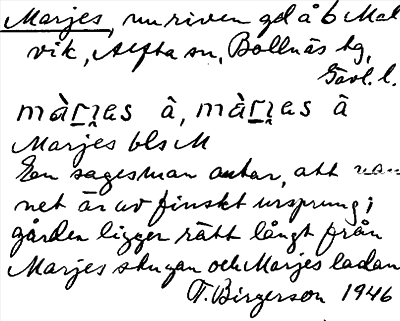 Marjes, nu riven gd å b Mal
vik, Alfta sn, Bollnäs tg,
Gävl. l.
màr̲n̯as â, màr̲n̯as â
Marjes bls M
En sagesman antar, att
net är av finskt ursprung;
gården ligger rätt långt från
Marjes stugan och Marjes ladan
T. Birgerson 1946